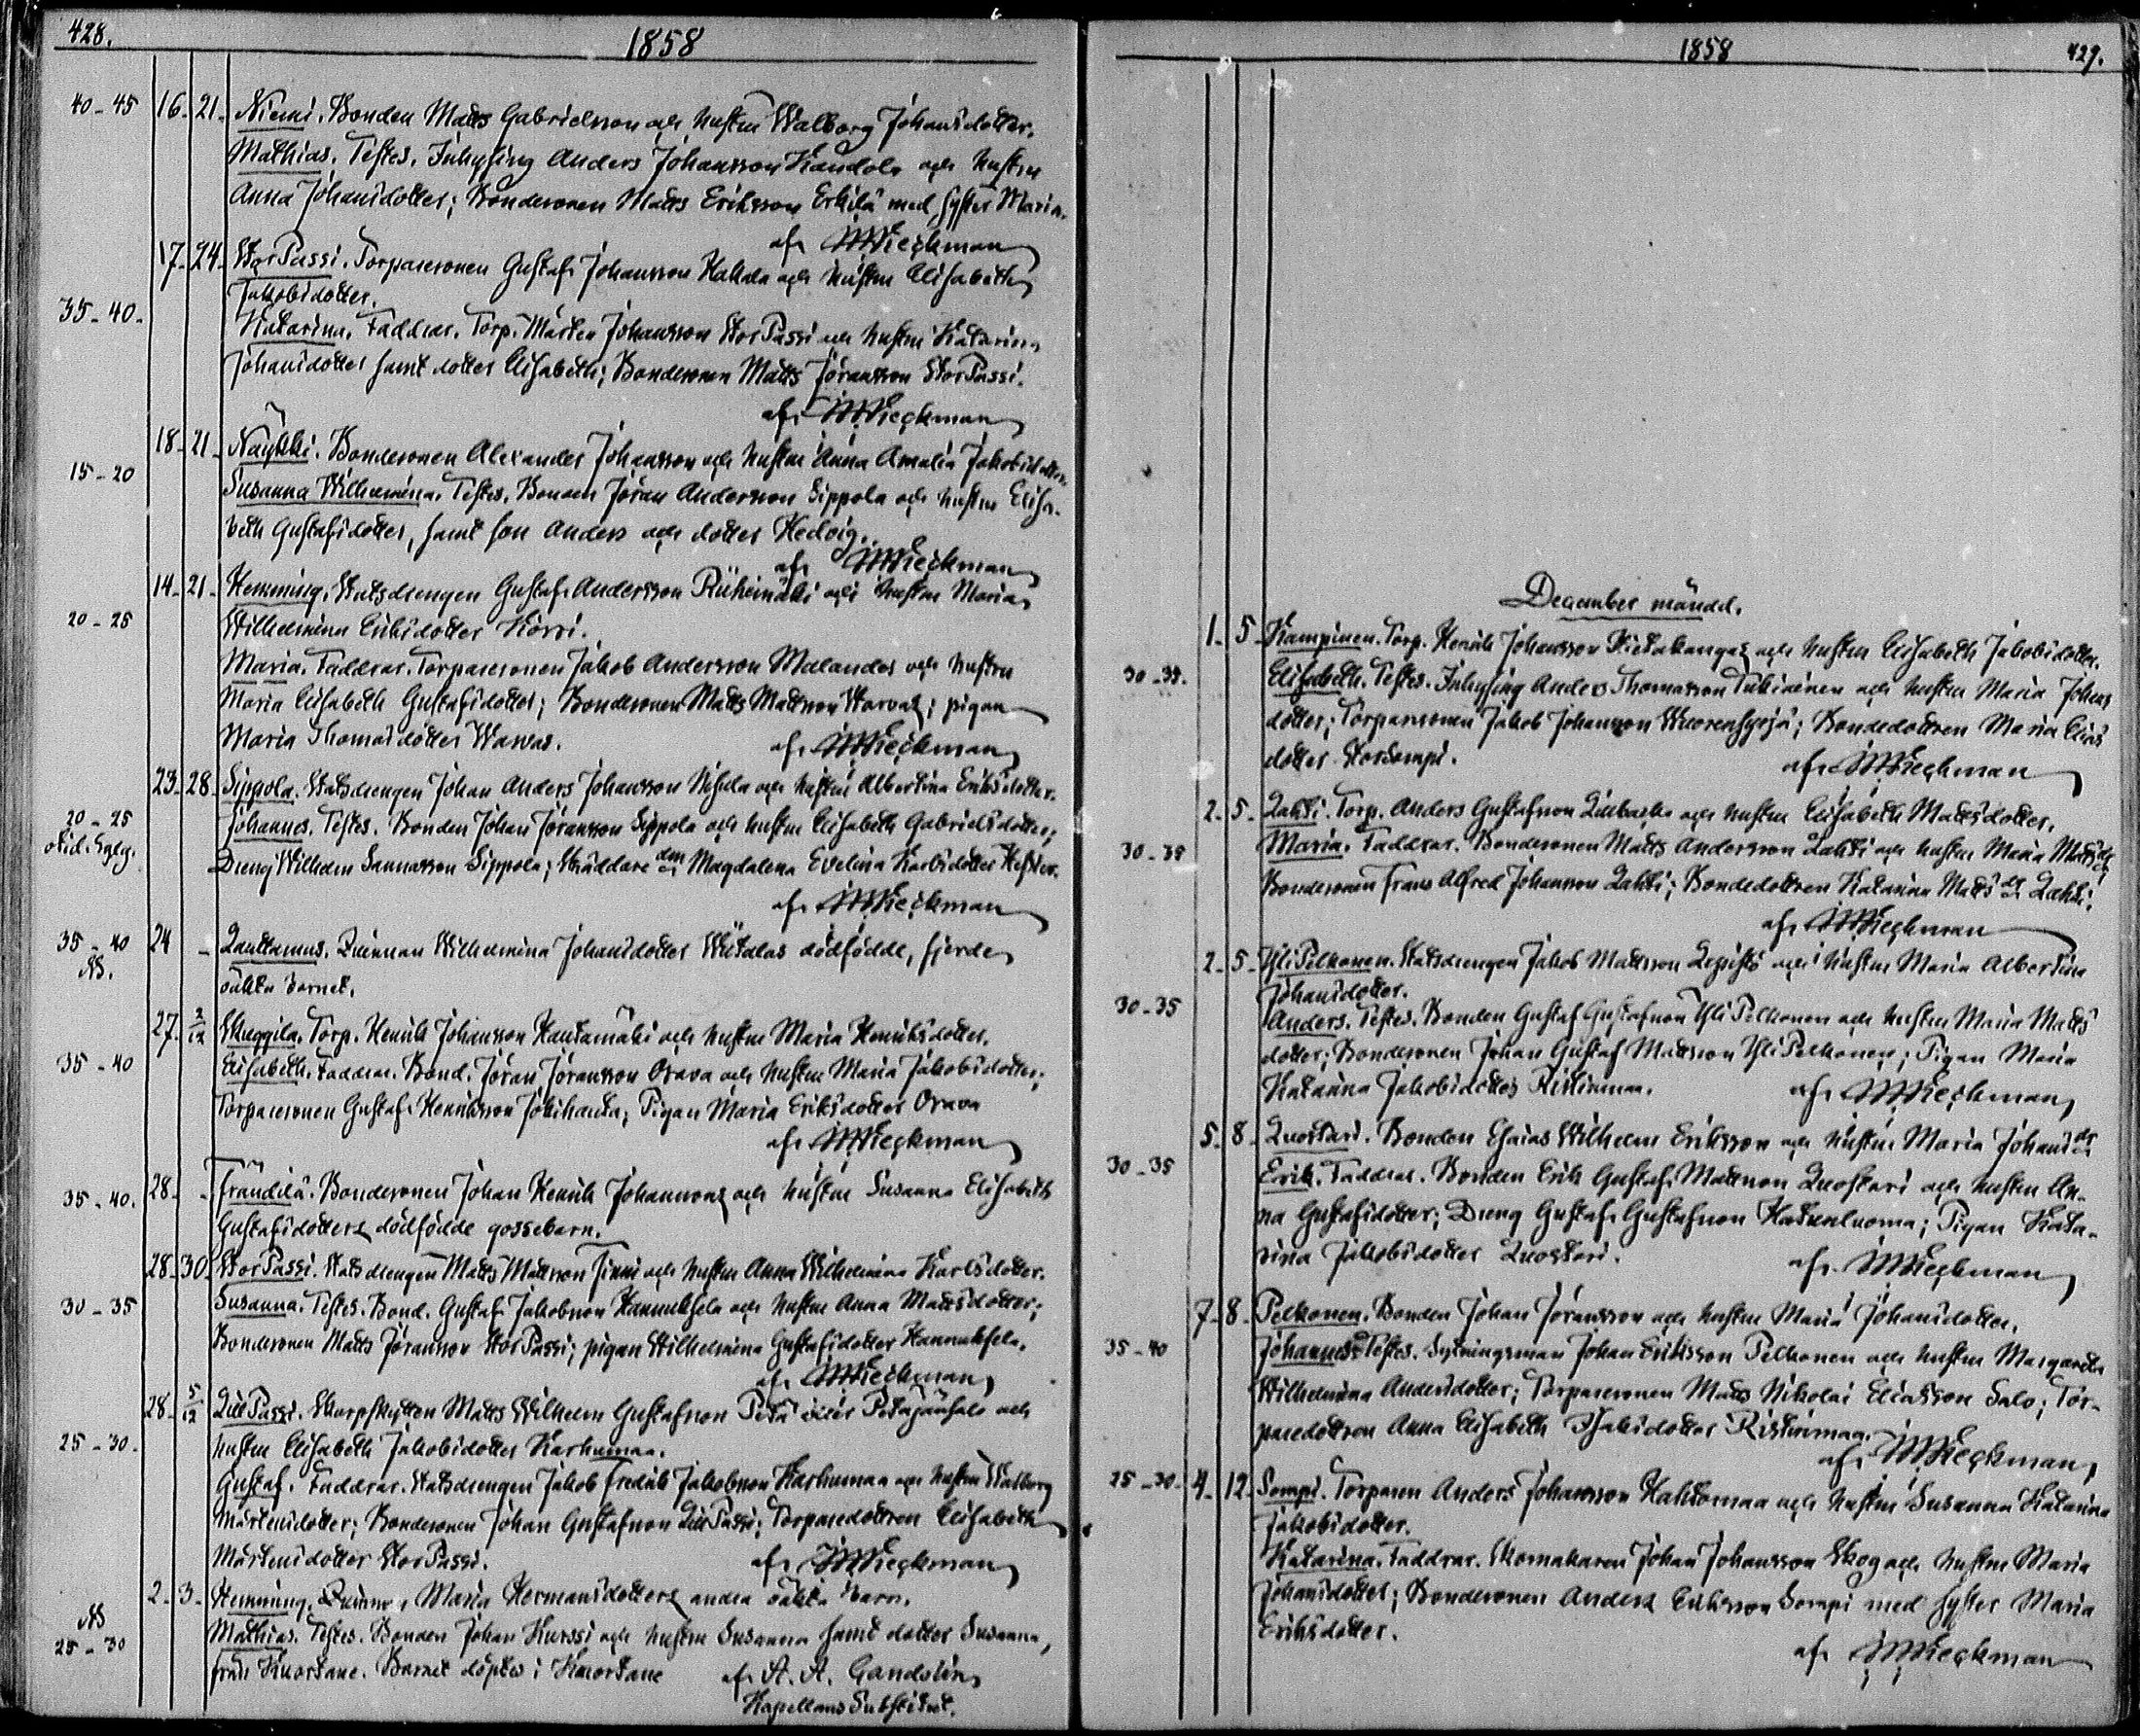 428.
1858
40-45 16. 21. Niemi. Bonden Matts Gabrielsson och hustru Walborg Johansdotter.
Mathias. Testes. Inhysing Anders Johansson Kandola och hustru
Anna Johansdotter; Bondesonen Matts Eriksson Erkilä med syster Maria.
af MWieckman
17. 24. StorPassi. Torparesonen Gustaf Johansson Hakala och hustru Elisabeth
Jakobsdotter.
35-40. Katarina. Faddrar. Torp. Mårten Johansson StorPassi och hustru Katarina
Johansdotter samt dotter Elisabeth; Bondesonen Matts Jöransson StorPassi.
af MWieckman
18. 21. Näykki. Bondesonen Alexander Johansson och hustru Anna Amalia Jakobsdotter.
15-20 Susanna Wilhelmina. Testes. Bonden Jöran Andersson Sippola och hustru Elisa-
beth Gustafsdotter, samt son Anders och dotter Hedvig.
af MWieckman
14. 21. Hemming. Statsdrengen Gustaf Andersson Riihimäki och hustru Maria
20-25 Wilhelmina Eriksdotter Körri.
Maria. Faddrar. Torparesonen Jakob Andersson Malandos och hustru
Maria Elisabeth Gustafsdotter; Bondesonen Matts Mattsson; pigan
Maria Thomasdotter Warvas.
af MWieckman
23. 28. Sippola. Statsdrengen Johan Anders Johansson och hustru Albertina Eriksdotter.
20-25 Johannes. Testes. Bonden Johan Jöransson Sippola och hustru Elisabeth Gabrielsdotter;
Dreng Wilhelm Sippola; Skräddare Magdalena Evelina
af MWieckman
35-40 24 - Lauttamus. Qvinnan Wilhelmina Johansdotter dödfödde, fjerde
oäkta barnet.
27. 2/12 Skuggila. Torp. Henrik Johansson Hautamäki och hustru Maria Henriksdotter.
35-40 Elisabeth. Faddrar. Bond. Jöran Jöransson Orava och hustru Maria Jakobsdotter;
Torparesonen Gustaf Henriksson; Pigan Maria Eriksdotter Orava
af MWieckman
28. - Frändilä. Bondesonen Johan Henrik Johanssons och hustru Susanna Elisabeth
35-40. Gustafsdotters dödfödde gossebarn.
28. 30. StorPassi. Statsdrengen Matts Mattsson och hustru Anna Wilhelmina Karlsdotter.
30-35 Susanna. Testes. Bond. Gustaf Jakobsson Hannuksela och hustru Anna Mattsdotter;
Bondesonen Matts Jöransson StorPassi; pigan Wilhelmina Gustafsdotter Hannuksela.
af MWieckman
28. 5/12 LillPassi. Skarpskytten Matts Wilhelm Gustafsson och
25-30. hustru Elisabeth Jakobsdotter Karhumaa.
Gustaf. Faddrar. Statsdrengen Jakob Fredrik Jakobsson Karhumaa och hustru Walborg
Mårtensdotter; Bondesonen Johan Gustafsson LillPassi; Torparedottren Elisabeth
Mårtensdotter StorPassi.
af MWieckman
2. 3. Hemming. Qvinnan Maria Hermansdotters andra oäkta barn.
25-30 Mathias. Testes. Bonden Johan Kurssi och hustru Susanna samt dotter Susanna,
från Kuortane. Barnet döptes i Kuortane af A. A. Gandolin
Kapellans Substitut.
1858
429.
December månad.
1. 5. Kampinen. Torp. Henrik Johansson Kietakangas och hustru Elisabeth Jakobsdotter.
30-35. Elisabeth. Testes. Inhysing Anders Thomasson och hustru Maria Johans
dotter; Torparesonen Jakob Johansson; Bondedottren Maria Elias
dotter Storsompi.
af MWieckman
2. 5. Lahti. Torp. Anders Gustafsson Lillbacka och hustru Elisabeth Mattsdotter.
30-35 Maria. Faddrar. Bondesonen Matts Andersson Lahti och hustru Maria Matts dr;
Bondesonen Frans Alfred Johansson Lahti; Bondedottren Katarina Matts dr Lahti.
af MWieckman
2. 5. YliPelkonen. Statsdrengen Jakob Mattsson Leppistö och hustru Maria Albertina
Johansdotter.
30-35 Anders. Testes. Bonden Gustaf Gustafsson YliPelkonen och hustru Maria Matts
dotter; Bondesonen Johan Gustaf Mattsson YliPelkonen; Pigan Maria
Katarina Jakobsdotter Ristimaa.
af MWieckman
5. 8. Luostari. Bonden Esaias Wilhelm Eriksson och hustru Maria Johans dr
30-35 Erik. Faddrar. Bonden Erik Gustaf Mattsson Luostari och hustru An-
na Gustafsdotter; Dreng Gustaf Gustafsson; Pigan Kata-
rina Jakobsdotter Luostari.
af MWieckman
7. 8. Pelkonen. Bonden Johan Jöransson och hustru Maria Johansdotter.
35-40 Johannes. Testes. Sytningsman Johan Eriksson Pelkonen och hustru Margareta
Wilhelmina Andersdotter; Torparesonen Matts Nikolai Eliasson Salo; Tor-
paredottren Anna Elisabeth Isaksdotter Ristimaa.
af MWieckman
25-30. 4. 12. Sompi. Torparen Anders Johansson Hahtomaa och hustru Susanna Katarina
Jakobsdotter.
Katarina. Faddrar. Skomakaren Johan Johansson Skog och hustru Maria
Johansdotter; Bondesonen Anders Eriksson Sompi med syster Maria
Eriksdotter.
af MWieckman